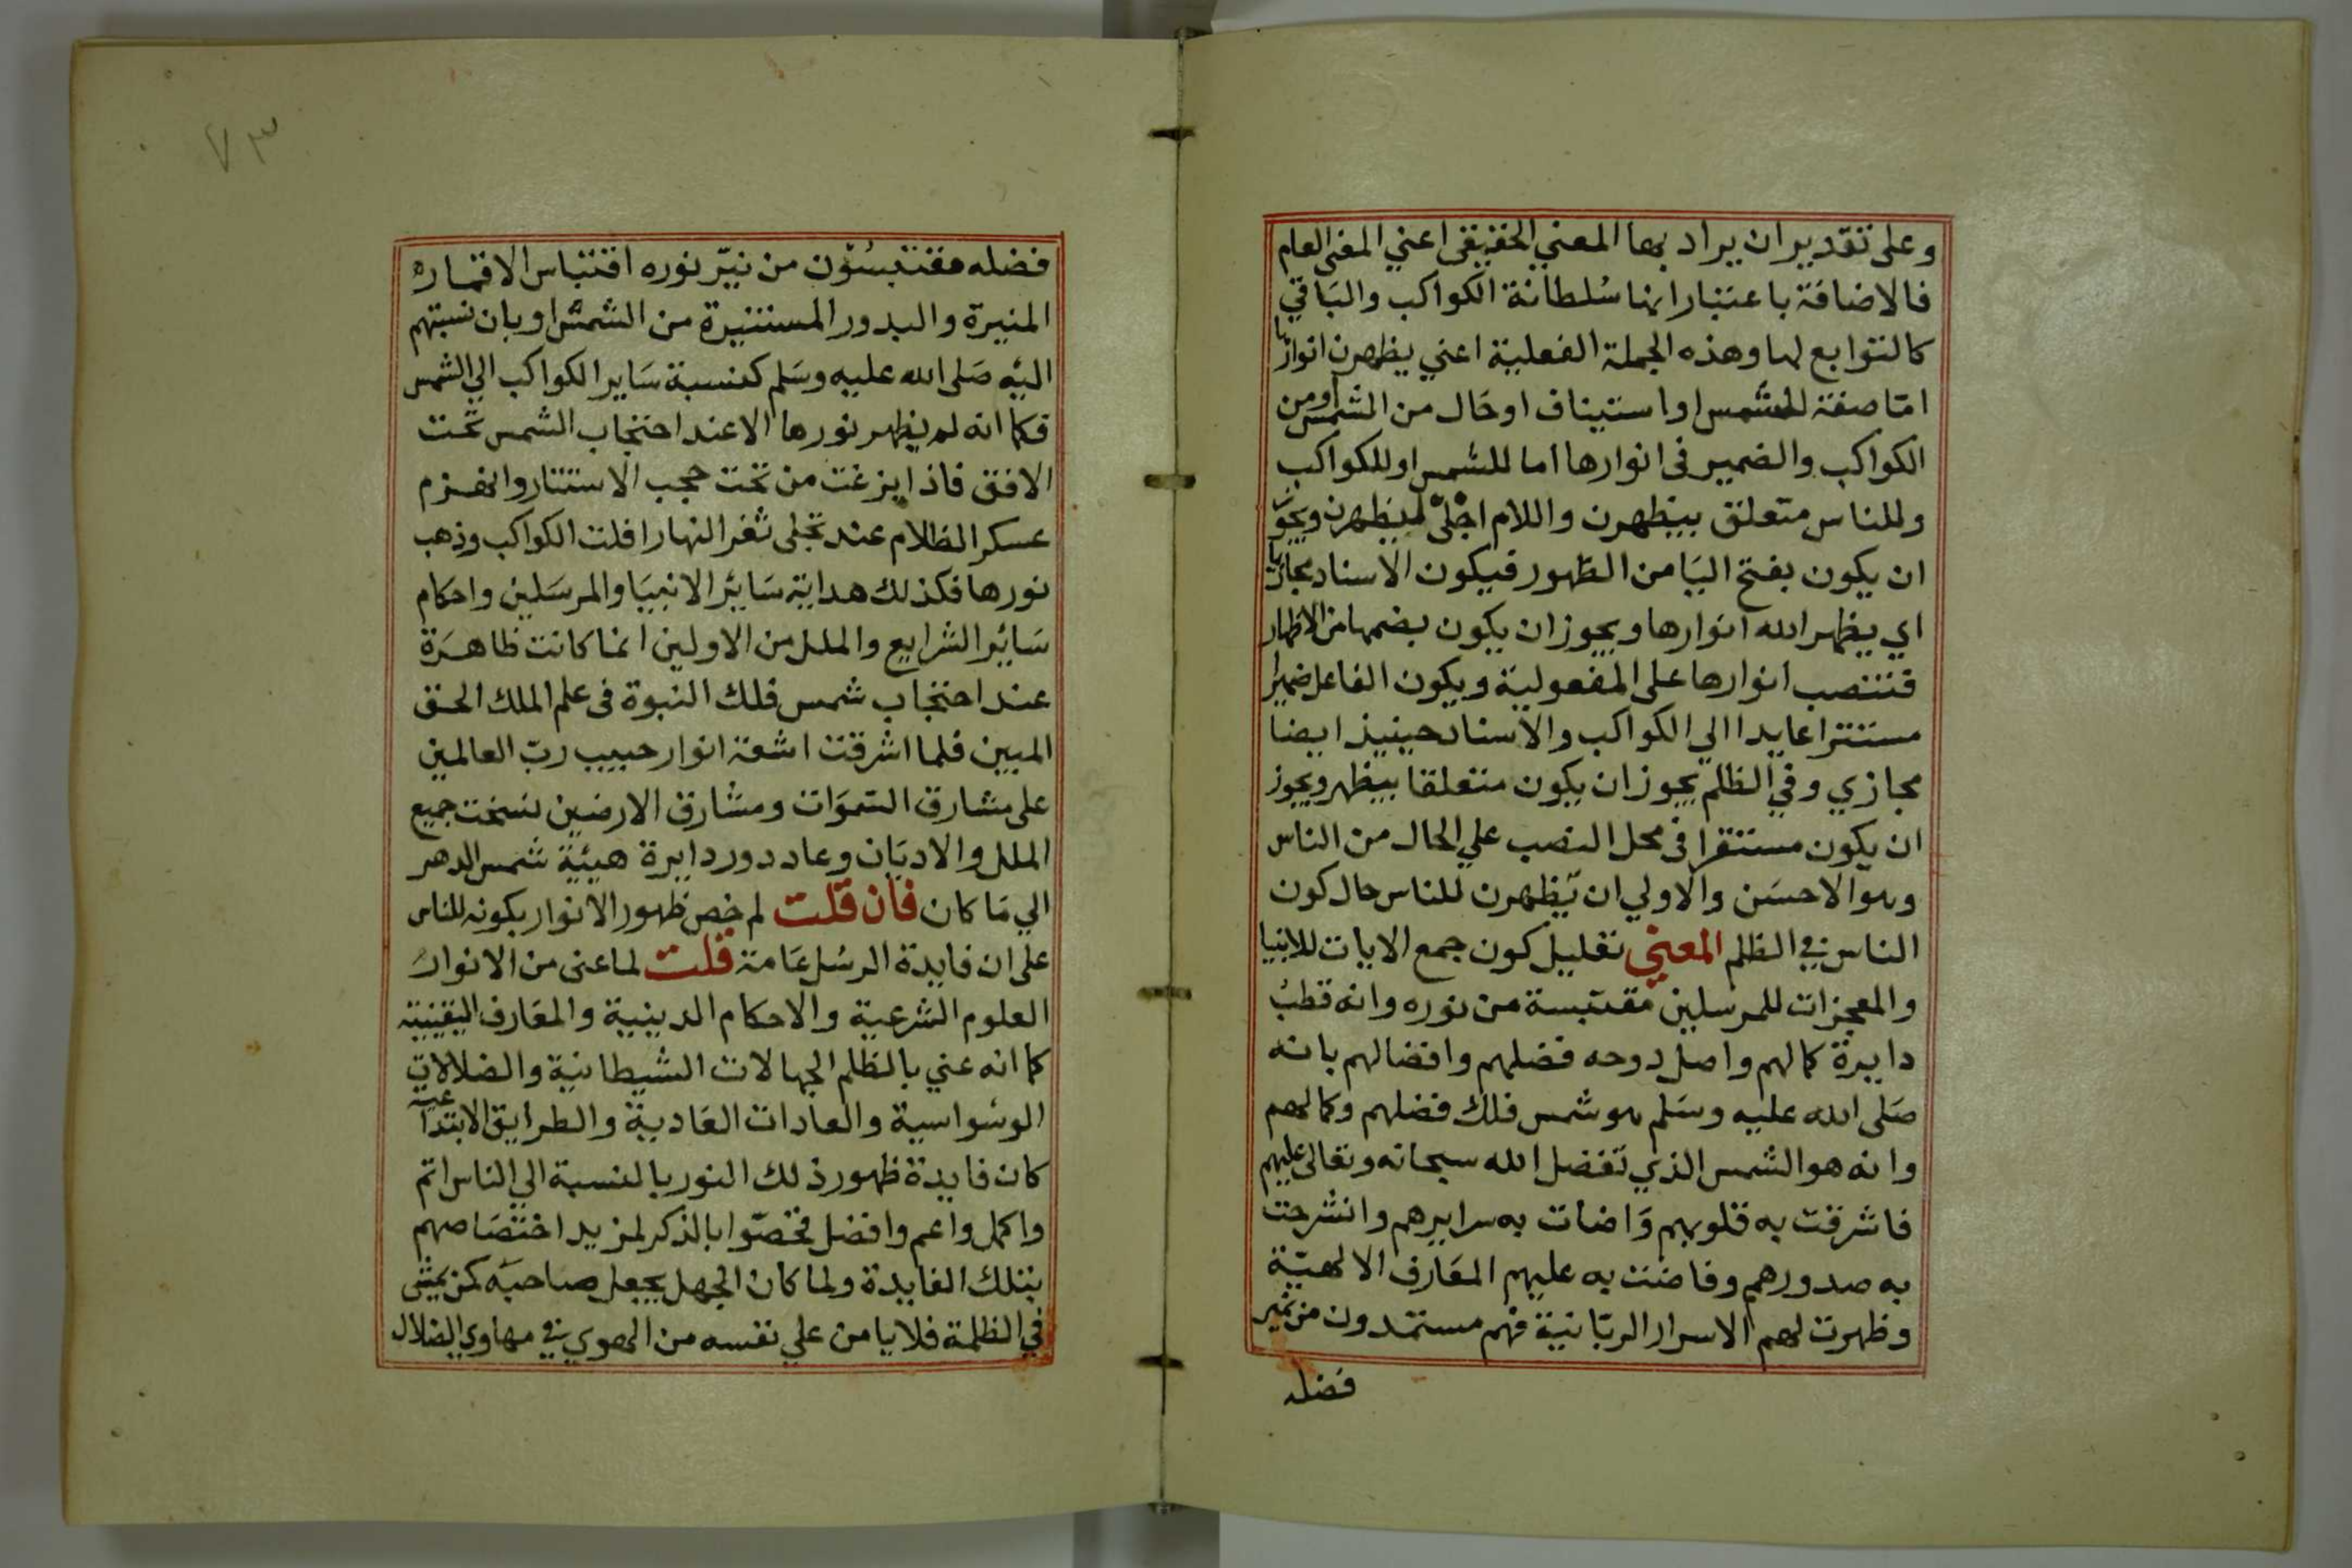 وعلى تقدير ان يراد بها المعني الحقيقى اعني المعنى العام
فالاضافة باعتبار انها سُلطانة الكواكب والبَاقي
كالتوابع لها وهذه الجملة الفعلية اعني يظهرن انوارها
امّا صفة للشمس او استيناف او حَال من الشمس او من
الكواكب والضمير فى انوارها اما للشمس او للكواكب
وللناس متعلق بيظهرن واللام اجْلىّ ليظهرن ويجوز
ان يكون بفتح اليَا من الظهور فيكون الاسناد مجازيا
اي يظهر الله انوارها ويجوز ان يكون بضمها من الاظهار
فتنتصب انوارها على المفعولية ويكون الفاعل ضميرا
مستترا عايدا الي الكواكب والاسناد حينيذ ايضا
مجازي وفي الظلم يجوز ان يكون متعلقا بيظهر ويجوز
ان يكون مستقرا فى محل النصب علي الحال من الناس
وهو الاحسَن والاولي ان يّظهرن للناس حال كون
الناس في الظلم المعني تعليل كون جمع الايات للانبيا
والمعجزات للمرسلين مقتبسة من نوره وانه قطبُ
دايرة كمالهم واصل دوحه فضلهم وافضالهم بانه
صَلى الله عليه وسَلم هو شمس فلك فضلهم وكمالهم
وانه هو الشمس الذي تفضل الله سبحانه وتعالى عليهم
فاشرقت به قلوبهم وَاضات به سرايرهم وانشرحت
به صدورهم وفاضت به عليهم المعَارف الالهيّة
وظهرت لهم الاسرار الربّانية فهم مستمدون من نمير
فضله
٧٣
فضله مقتبسُون من نيّر نوره اقتباس الاقمار
المنيرة والبدور المستنيرة من الشمس او بان نسبتهم
اليه صَلى الله عليه وسَلم كنسبة سَاير الكواكب الي الشمس
فكما انه لم يظهر نورها الا عند احتجاب الشمس تحت
الافق فاذا بزغت من تحت حجب الاستتار وانهزم
عسكر الظلام عند تجلى ثغر النهار افلت الكواكب وذهب
نورها فكذلك هداية سَائر الانبيَا والمرسَلين واحكام
سَائر الشرايع والملل من الاولين انما كانت ظاهرَة
عند احتجاب شمس فلك النبوة فى علم الملك الحق
المبين فلما اشرقت اشعة انوار حبيب ربّ العالمين
على مشارق السّموَات ومشارق الارضين نسخت جميع
الملل والاديَان وعاد دور دايرة هيئة شمس الدهر
الي مَا كان فان قلت لم خص ظهور الانوار بكونه للناس
على ان فايدة الرسُل عَامة قلت لما عنى من الانوار
العلوم الشرعية والاحكام الدينية والمعَارف اليقينية
كما انه عني بالظلم الجهالات الشيطانية والضلالات
الوسْواسية والعادات العَادية والطرايق الابتداعية
كان فايدة ظهور ذلك النور بالنسبة الي الناس اتم
واكمل واعم وافضل فخصّوا بالذكر لمزيد اختصَاصهم
بتلك الفايدة ولما كان الجهل يجعل صاحبَه كمن يمشى
في الظلمة فلا يامن علي نفسه من الهوي في مهاوي الضلال